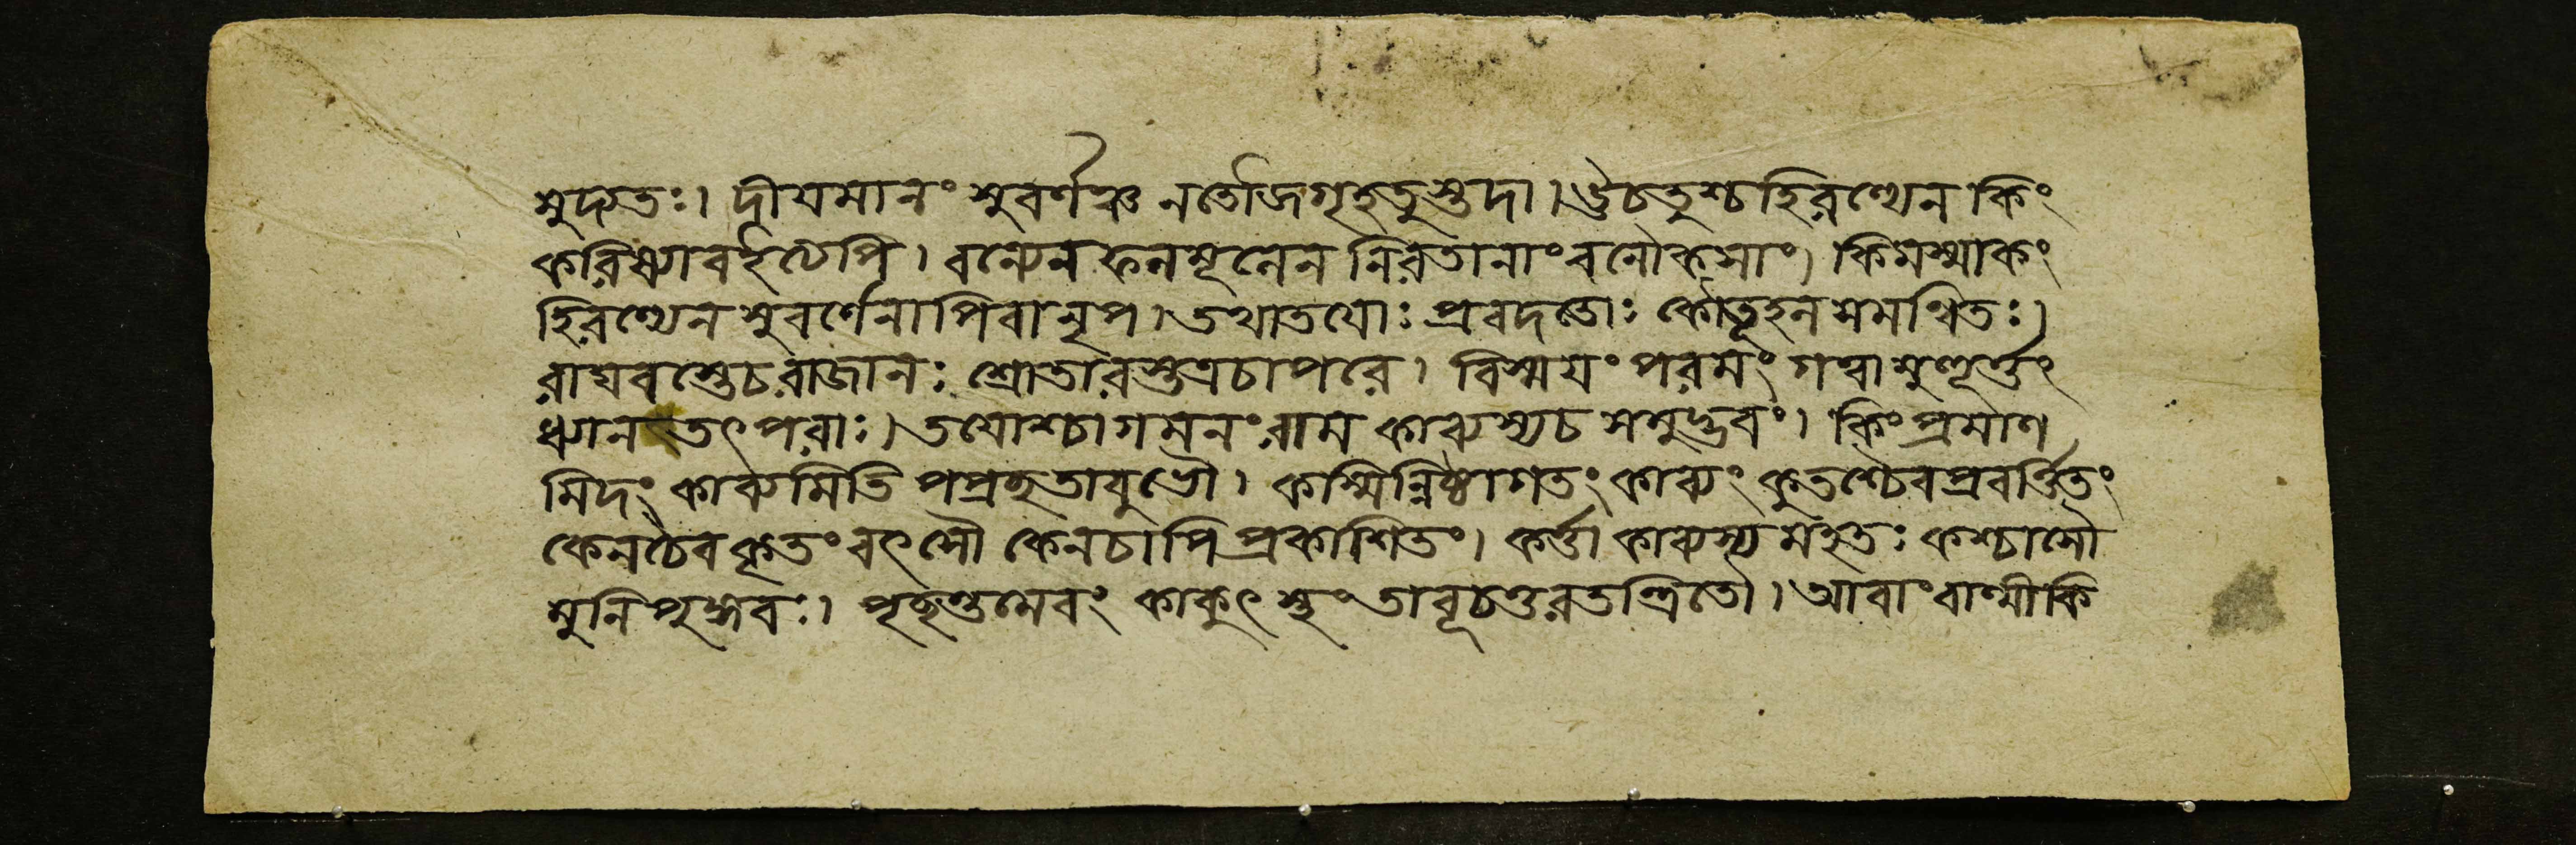 সুদ্যতঃ। দীয়মানং সুবর্ণঞ্চ নতৌজগৃহতুস্তদা। ঊচতুশ্চহিরণ্যেন কিং
করিষ্যাবহেপি। বন্যেন ফলমূলেন নিরতানাংবনৌকসাং। কিমস্মাকং
হিরণ্যেন সুবর্ণেনাপিবানৃপ। তথাতয়োঃ প্রবদতোঃ কৌতূহলসমন্বিতঃ।
রাঘবস্তেচরাজানঃ শ্রোতারস্তত্রচাপরে। বিস্ময়ং পরমং গত্বামুহূর্ত্তং
ধ্যানতৎপরাঃ। তয়োশ্চাগমনং রাম কাব্যস্যচ সমুদ্ভবং। কিং প্রমাণ
মিদং কাব্যমিতি পপ্রচ্ছতাবুভৌ। কস্মিন্নিষ্ঠাগতং কাব্যং কুতশ্চৈবপ্রবর্ত্তিতং
কেনচৈবকৃতং বৎসৌ কেনচাপিপ্রকাশিতং। কর্ত্তা কাব্যস্য মহতঃ কশ্চাসৌ
মুনিপুঙ্গবঃ। পৃচ্ছন্তমেবং কাকুৎস্থং তাবূচতুরতন্দ্রিতৌ। আবাং বাল্মীকি